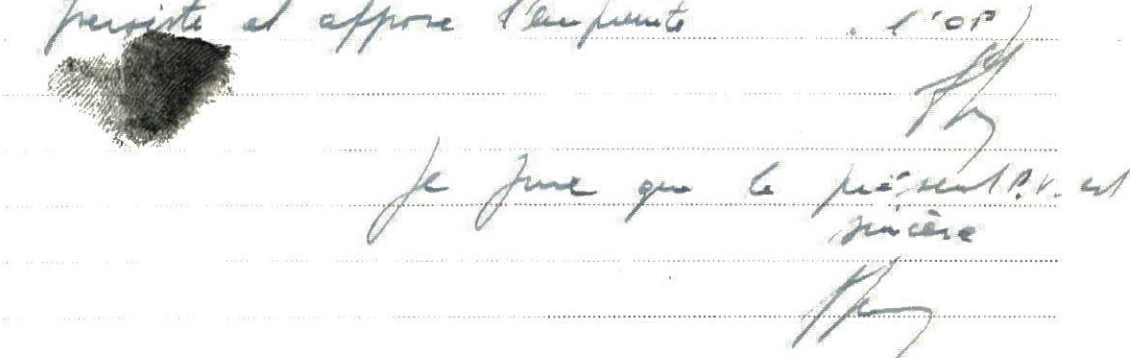 persiste et appose l'empreinte . l'OPJ
Je jure que le présent P.V. est
sincère